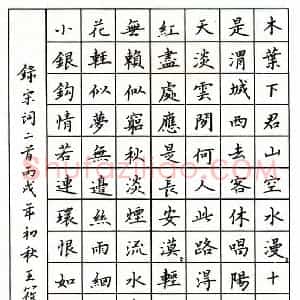 木葉下君山空水漫〻十
是渭城西去客休唱陽
天淡雲閒何人此路得
紅盡處應是長安漠〻輕
無賴似窮秋淡煙流水
花輕似夢無邊絲雨細
小銀鉤情若連環恨如
錄宋詞二首丙戌年初秋王筱